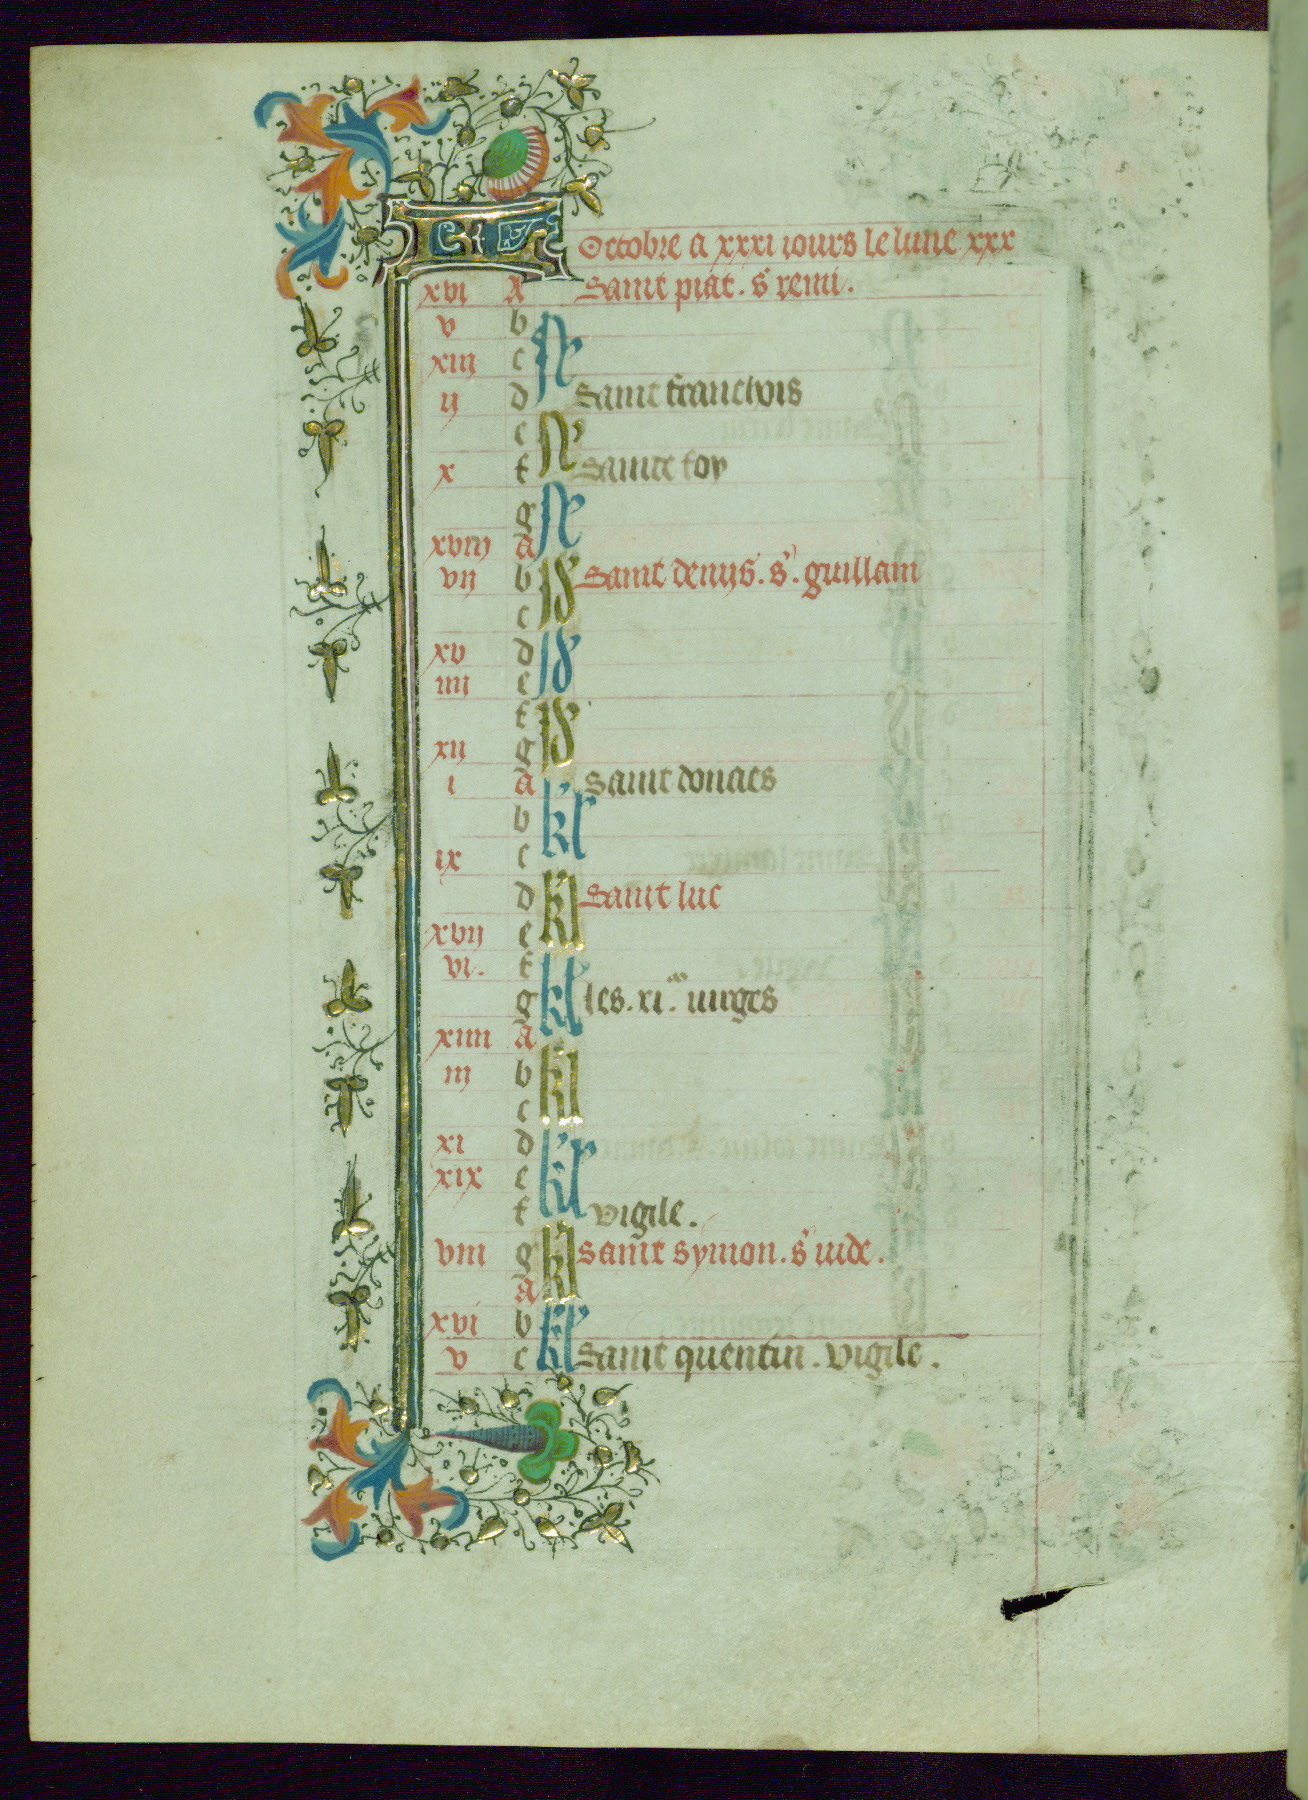 Kl Octobre a xxxi iours le lune xxx
xvi A Saint piat. s' remi.
v b N
xiii c
ii d Saint franchois
e N
x f Sainte foy
g N
xviii A
vii b Id Saint denijs. s'. guillam
c
xv d Id
iiii e
f Id
xii g
i A Saint donaes
b kl
ix c
d kl Saint luc
xvii e
vi. f kl
g les. xi.m virges
xiiii A
iii b kl
c
xi d kl
xix e
f vigile.
viii g kl saint symon. s' iude.
A
xvi b kl
v c Saint quentin. vigile.